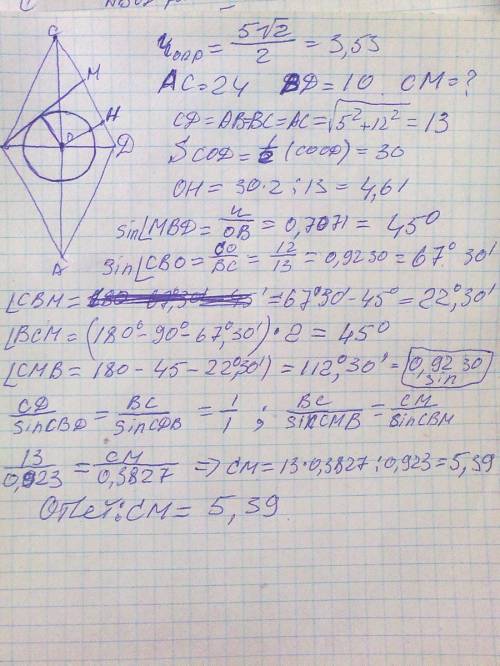 C
M
H
O
D
A
r опр = 5√2 / 2 = 3,53
AC = 24 BD = 10 CM = ?
CD = AB = BC = AC = √5² + 12² = 13
S COD = ½ (CO·OD) = 30
OH = 30 · 2 : 13 = 4,61
sin∠MBD = r / OB = 0,7071 = 45°
sin∠CBO = CO / BC = 12 / 13 = 0,9230 = 67° 30'
∠CBM = 67°30' - 45° = 22°,30'
∠BCM = (180° - 90° - 67,30') · 2 = 45°
∠CMB = 180 - 45 - 22°,30') = 112°,30' = 0,9230 sin
CD / sinCBD = BC / sinCDB = 1 / 1 ; BC / sinCMB = CM / sinCBM
13 / 0,923 = CM / 0,3827 => CM = 13 · 0,3827 : 0,923 = 5,39
Ответ: CM = 5,39